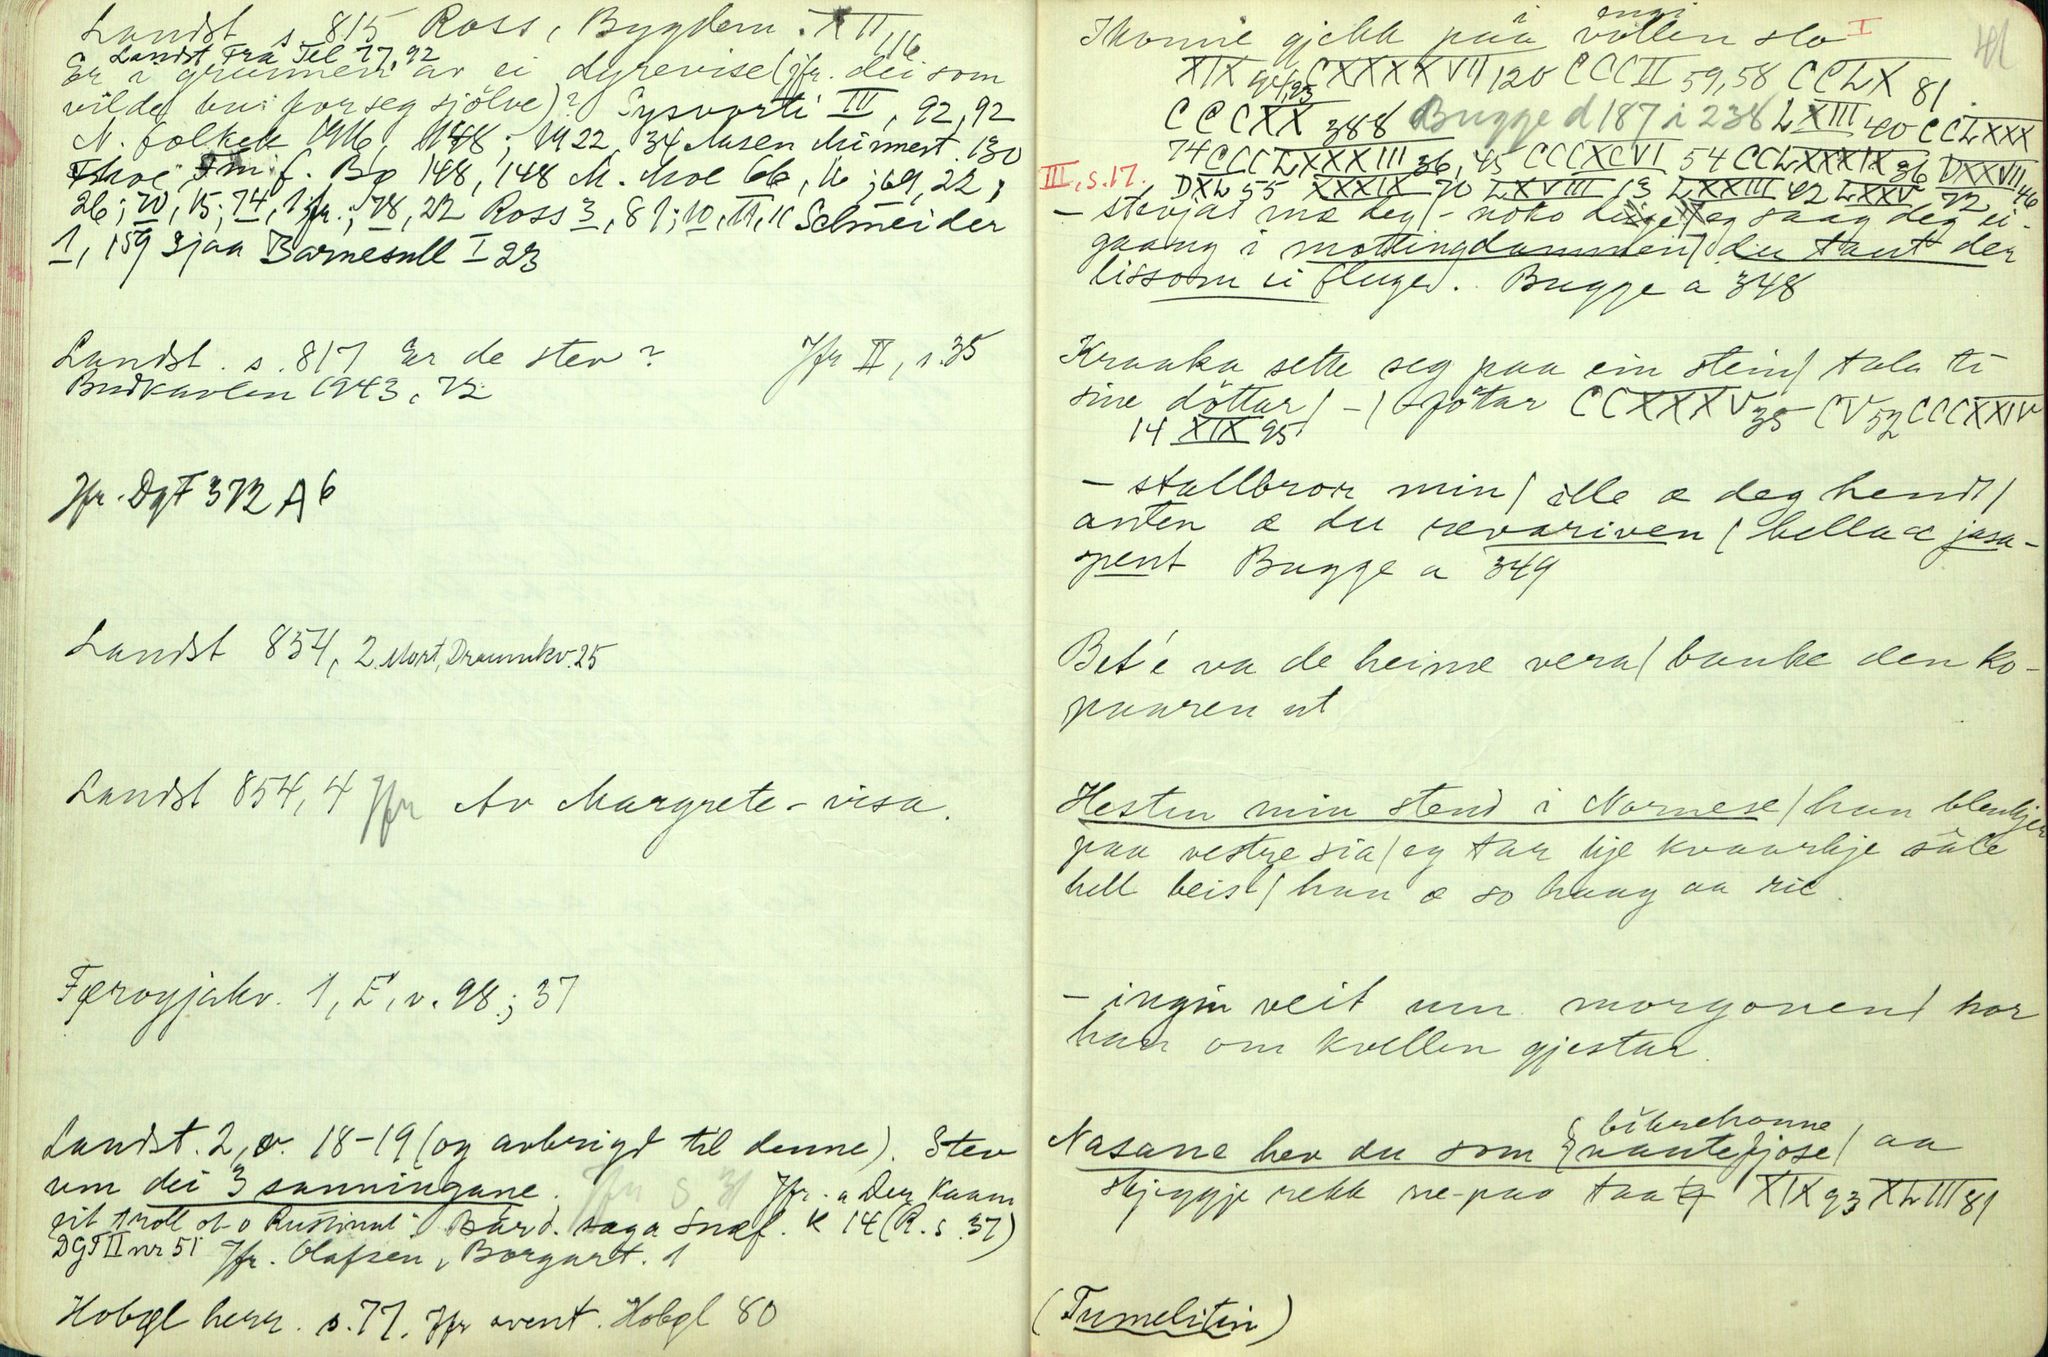 Landst s 815 Ross, Bygdem. XII, 16
Landst Fra Tel 77, 92
Er i grunnen av ei dyrevise (jfr. dei som
vilde bu for seg sjölve)? Sysvorti III, 92, 92
N. folkek 1916, 148; 1922, 34 Aasen Minnest. 130
Moe f. Bø 148, 148 M. Moe 66, 16; 69, 22;
26; 70, 15; 74, 1 jfr.; 78, 22 Ross 3, 81; 10, 11, 11 Schneider
1, 159 Sjaa Barnesull I 23
Landst. s. 817 Er de stev? Jfr II, s. 35
Budkavlen 1943, 72
Jfr. DgF 372 A 6
Landst 854, 2 Mort, Draumkv. 25
Landst 854, 4 Jfr Av Margrete-visa.
Færoyjakv. 1, E, v. 98; 37
Landst. 2, v. 18-19 (og avbrigd til denne). Stev
um dei 3 sanningane. Jfr s 31 Jfr. a Den kaam
eit troll at o Bård. saga Snæf. K 14 (R. s. 37)
DGF II nr 51 Jfr. Olafsen, Borgart. 1
Hobøl herr. s. 77. Jfr event. Hobøl 80
41
Ikonne gjekk på vollen slo I
engi
XIX 94,95 CXXXXVII 120 CCCII 59, 58 CCLX 81.
CCCXX 388 Bugge d 187 i 238 LXIII 40 CCLXXX
74 CCCLXXXIII 36, 45 CCCXCVI 54 CCLXXXIX 36 DXXVII 46
III, s. 17. DXL 55 XXXIX 70 LXVIII 13 LXXIII 42 LXXV 72
- stogas mæ deg/ - noko eg saag deg ei-
gaang i mottingdammen/ du taut der
lissom ei fluge. Bugge a 348
Kraaka sette seg paa ein stein/ tala ti
sine döttar/ - / - fötar CCXXXV 35 CV 52 CCCXXIV
14 XIX 95
- stallbror min/ ille æ deg hendt/
anten æ du rævariven/ hella æ jasa-
spent Bugge a 349
Bet'e va de heime vera/ banke den ko-
paaren ut
Hesten min stend i Nornese/ han blenkjer
paa vestre sia/ eg tar kje kvaarkje såle
hell beisl/ han æ so haag aa rie.
- ingin veit um morgonen/ hor
han om kvellen gjestar.
bikrehonne
Nasane hev du som vantefjose/ aa
skjeggje rekk ne-paa taa XIX 93 XLIII 81
(Tumelitin)